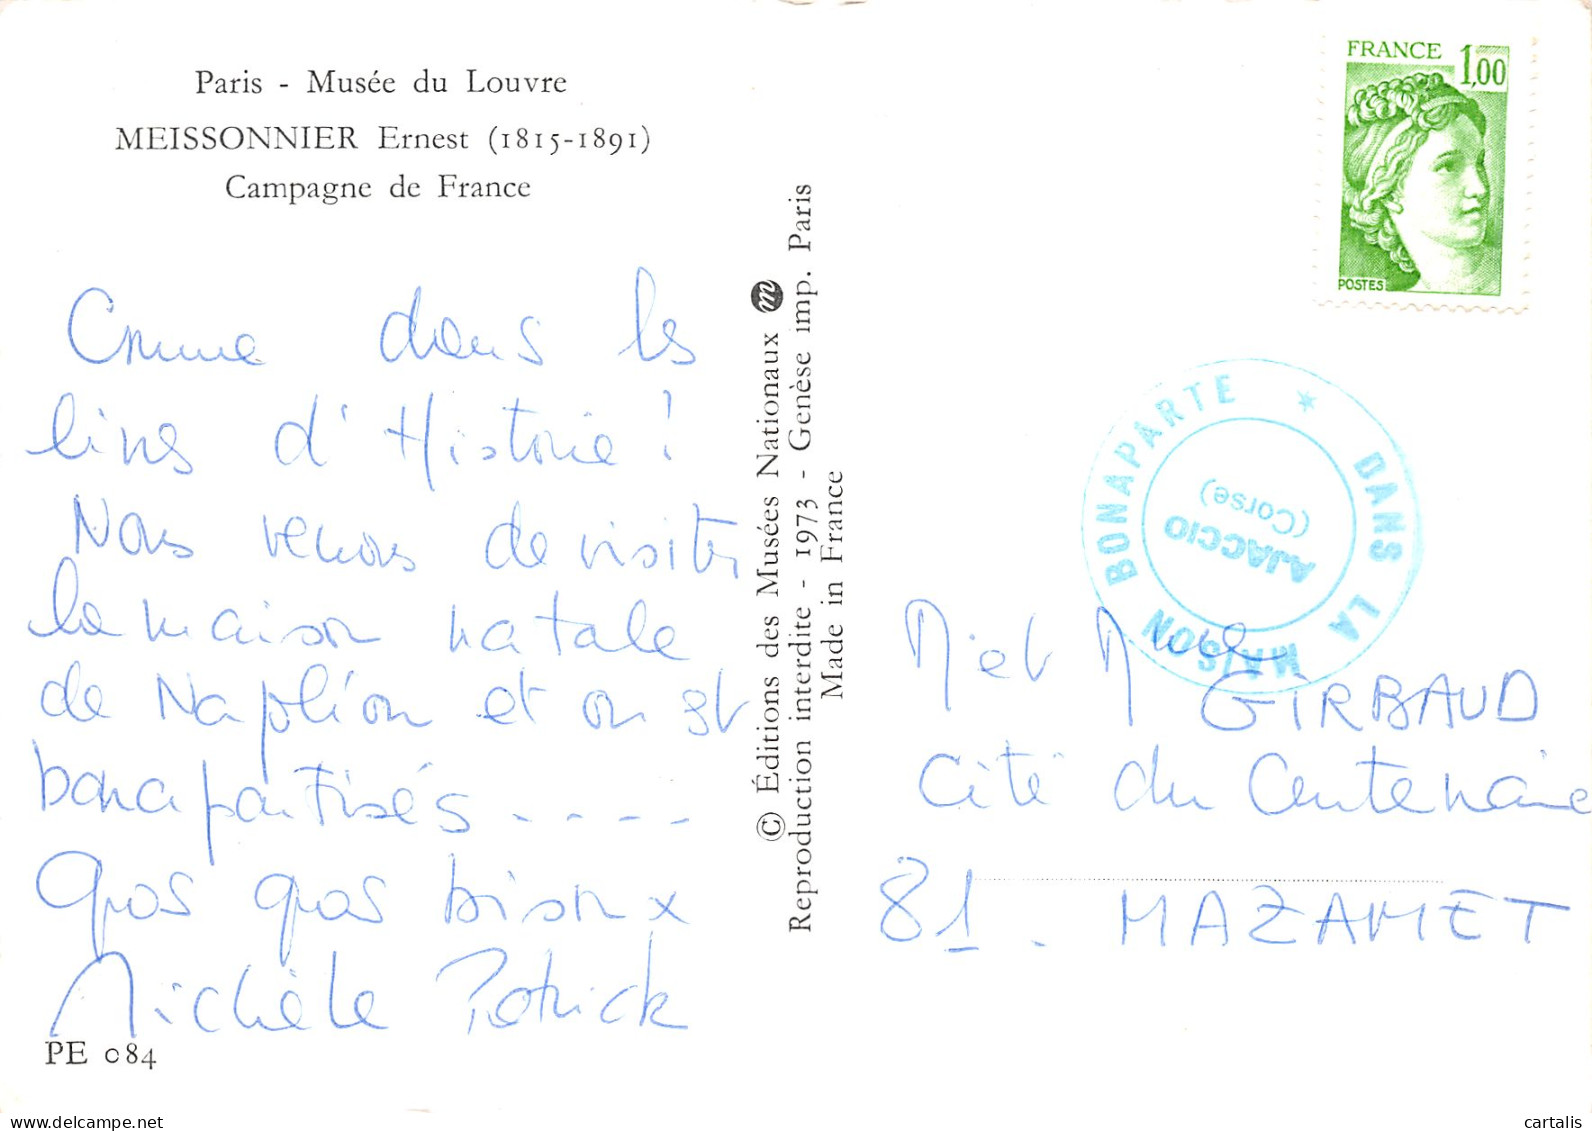 Paris - Musée du Louvre
MEISSONNIER Ernest (1815-1891)
Campagne de France
Comme dans les
livres d'Histoire !
Nous venons de visiter
la maison natale
de Napoléon et on est
bonapartisés - - - -
Gros gros bisoux
Michèle Patrick
PE 084
© Éditions des Musées Nationaux m
Reproduction interdite - 1973 - Genèse imp. Paris
Made in France
FRANCE 1,00
POSTES
DANS LA MAISON BONAPARTE *
AJACCIO
(Corse)
M. et Mme
GIRBAUD
Cité du Centenaire
81 - MAZAMET
delcampe.net
cartalis